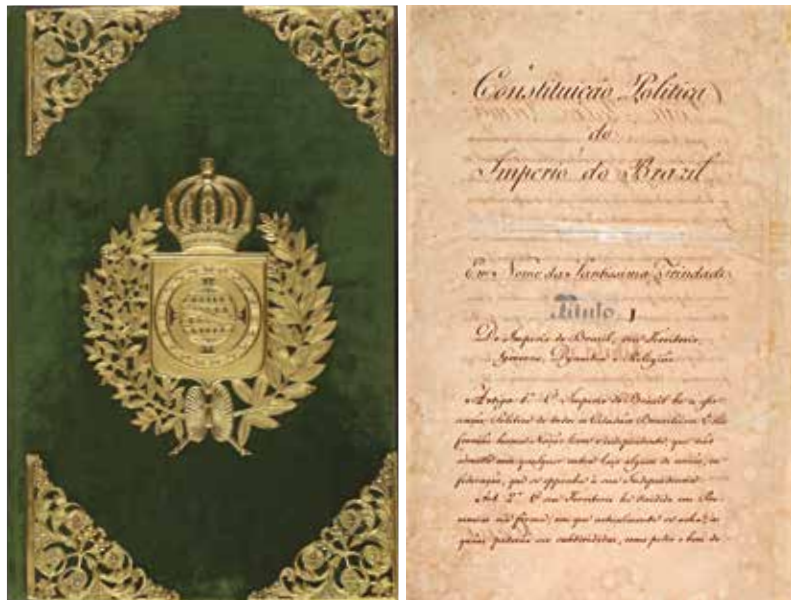 Constituição Politica
do
Imperio do Brazil
Em Nome da Santissima Trindade
Titulo 1
Do Imperio do Brazil, seu Territorio,
Governo, Dynastia e Religião
Artigo 1º O Imperio do Brazil he a asso-
ciação Politica de todos os Cidadãos Brazileiros. Elles
formão huma Nação livre e independente, que não
admitte com qualquer outra laço algum de união, ou
federação, que se opponha á sua Independencia
Art. 2º O seu Territorio he dividido em Pro-
vincias na fórma, em que actualmente se acha, as
quaes poderão ser subdivididas, como pedir o bem do